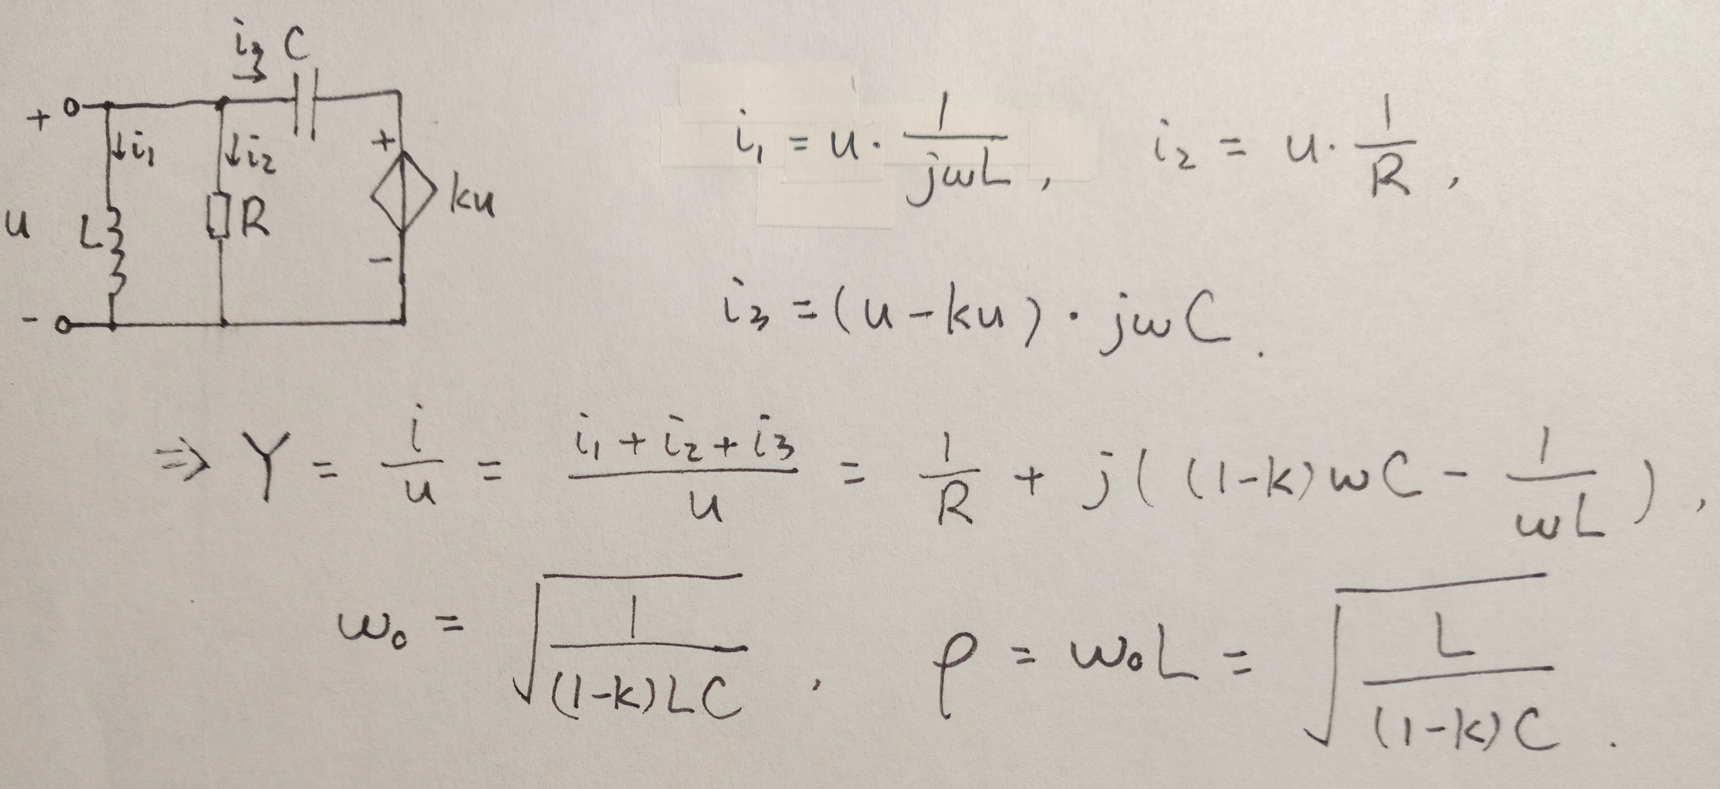 i₃ C
+ ↓i₁ ↓i₂ +
u L R ku
-
-
i₁ = u · 1/(jωL) , i₂ = u · 1/R ,
i₃ = (u - ku) · jωC .
⇒ Y = i/u = (i₁ + i₂ + i₃)/u = 1/R + j( (1-k)ωC - 1/(ωL) ) ,
ω₀ = √(1/((1-k)LC)) , ρ = ω₀L = √(L/((1-k)C)) .